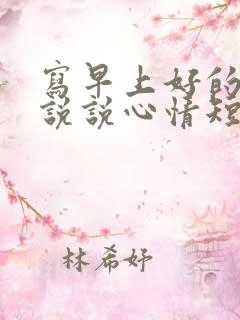 寫早上好的
說說心情短
林希妤